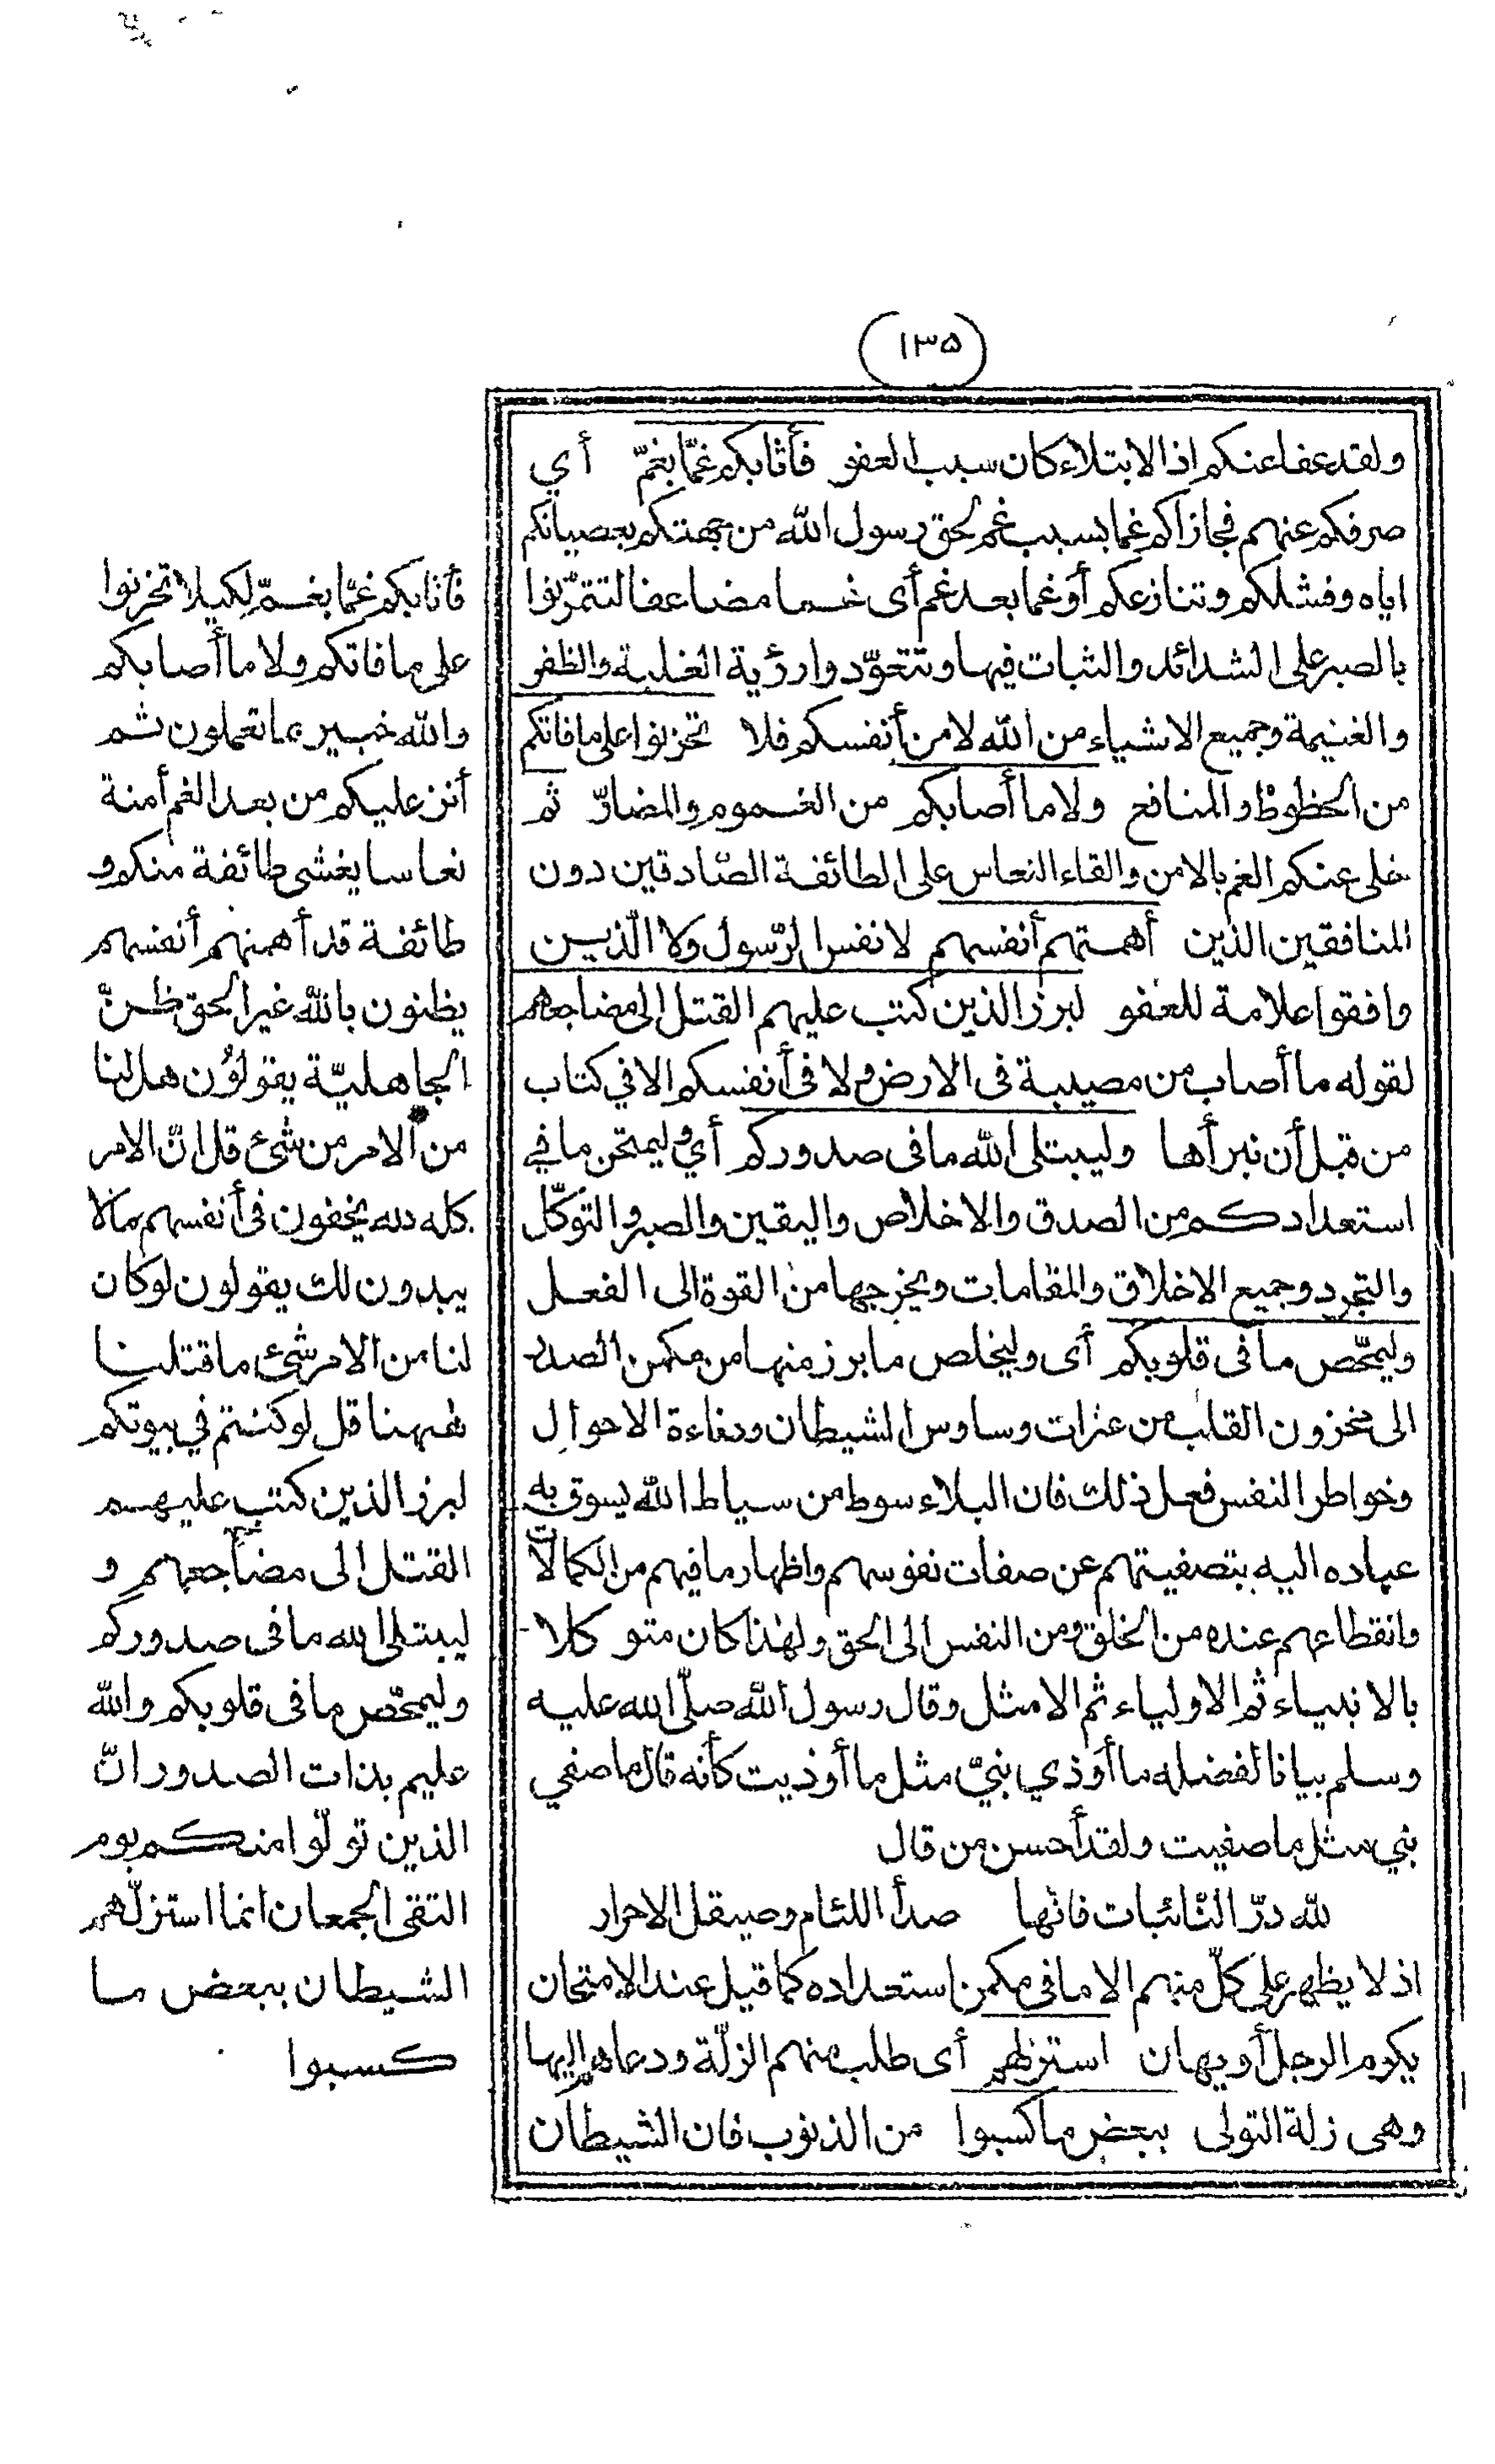 (١٣٥)
ولقد عفا عنكم اذ الابتلاء كان سبب العفو فأثابكم غمّا بغمّ أي
صرفكم عنهم فجازاكم غما بسبب غم لحق رسول الله من جهتكم بعصيانكم
اياه وفشلكم وتنازعكم أو غما بعد غم أى غما مضاعفا لتتمرّنوا
بالصبر على الشدائد والثبات فيها وتتعوّدوا رؤية الغلبة والظفر
والغنيمة وجميع الاشياء من الله لا من أنفسكم فلا تحزنوا على ما فاتكم
من الحظوظ والمنافع ولا ما أصابكم من الغموم والمضارّ ثم
خلى عنكم الغم بالامن والقاء النعاس على الطائفة الصّادقين دون
المنافقين الذين أهمتهم أنفسهم لا نفس الرّسول ولا الّذيـن
وافقوا علامة للعفو لبرز الذين كتب عليهم القتل الى مضاجعهم
لقوله ما أصاب من مصيبة فى الارض ولا فى أنفسكم الا في كتاب
من قبل أن نبرأها وليبتلى الله ما فى صدوركم أي وليمتحن ما في
استعدادكم من الصدق والاخلاص واليقين والصبر والتوكّل
والتجرد وجميع الاخلاق والمقامات ويخرجها من القوة الى الفعل
وليمحّص ما فى قلوبكم أى وليخلص ما برز منها من مكمن الصدر
الى مخزون القلب من عثرات وساوس الشيطان ودناءة الاحوال
وخواطر النفس فعل ذلك فان البلاء سوط من سياط الله يسوق به
عباده اليه بتصفيتهم عن صفات نفوسهم واظهار ما فيهم من الكمالات
وانقطاعهم عنده من الخلق ومن النفس الى الحق ولهذا كان متوكلا
بالانبياء ثم الاولياء ثم الامثل وقال رسول الله صلّى الله عليه
وسلم بيانا لفضله ما أوذي نبيّ مثل ما أوذيت كأنه قال ما صفي
نبي مثل ما صفيت ولقد أحسن من قال
لله درّ النّائبات فانّها صدأ اللئام وصيقل الاحرار
اذ لا يظهر على كلّ منهم الا ما فى مكمن استعداده كما قيل عند الامتحان
يكرم الرجل أو يهان استزلهم أى طلب منهم الزلّة ودعاهم اليها
وهى زلة التولى ببعض ما كسبوا من الذنوب فان الشيطان
فأثابكم غمّا بغـمّ لكيلا تحزنوا
على ما فاتكم ولا ما أصابكم
والله خبير بما تعملون ثم
أنزل عليكم من بعد الغم أمنة
نعاسا يغشى طائفة منكم و
طائفة قد أهمتهم أنفسهم
يظنون بالله غير الحق ظنّ
الجاهليّة يقولون هل لنا
من الامر من شئ قل انّ الامر
كله لله يخفون فى أنفسهم مالا
يبدون لك يقولون لو كان
لنا من الامر شئ ما قتلنـا
ههنا قل لو كنتم في بيوتكم
لبرز الذين كتب عليهـم
القتل الى مضاجعهم و
ليبتلى الله ما فى صدوركم
وليمحّص ما فى قلوبكم والله
عليم بذات الصدور انّ
الذين تولّوا منكم يوم
التقى الجمعان انما استزلّهم
الشيطان ببعض ما
كسبوا